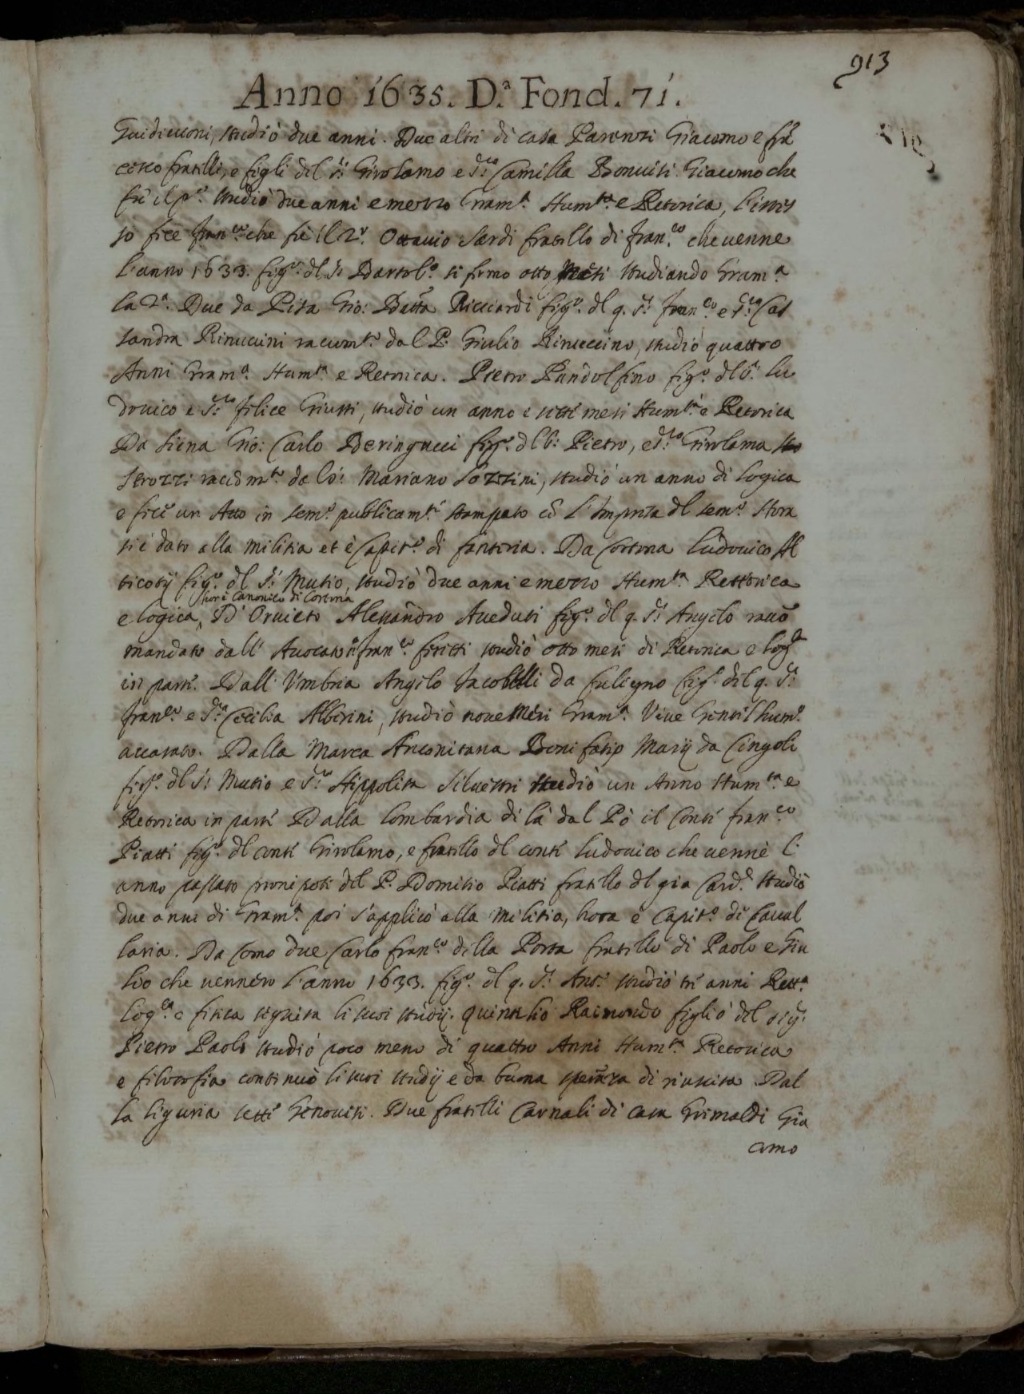 913
Anno 1635. D.ª Fond. 71.
Guidiccioni, studiò due anni. Due altri di casa Parensi Giacomo e frã
cesco fratelli, e figli del S.r Girolamo e S.ra Camilla Bonvisi. Giacomo che
fù il p.º studiò due anni e mezzo Gram.ª Hum.tà e Retorica, l'istes
so fece Fran.co che fù il 2.º Ottavio Sardi fratello di Fran.co che venne
l'anno 1633. fig.º del S.r Bartol.º si fermo otto Mesi studiando Gram.ª
la 2.ª Due da Pisa Gio: Batta Ricciardi fig.º del q. S.r Fran.co e S.ra Cas
sandra Rinuccini racom.to dal P. Giulio Rinuccino, studiò quattro
Anni Gram.ª Hum.tà e Retorica. Pietro Pandolfino fig.º del S.r Lu
dovico e S.ra felice Giusti, studiò un anno e sette mesi Hum.tà e Retorica
Da Siena Gio: Carlo Beringucci fig.º del S.r Pietro, e S.ra Girolama
Strozzi racom.to da S.r Mariano Sozzini, studiò un anno di Logica
e fece un Atto in sem.º publicam.te stampato cõ l'Impresa del sem.º Hora
si è dato alla militia et è Capit.º di fanteria. Da Cortona Ludovico Al
ticozij fig.º del S.r Mutio, studiò due anni e mezzo Hum.tà Rettorica
hora Canonico di Cortona
e logica, D'Orvieto Alessandro Aveduti fig.º del q. S.r Angelo racõ
mandato dall'Avocato S.r Fran.co studiò otto mesi di Retorica e log.ca
in parte. Dall'Umbria Angelo Jacobilli da fuligno fig.º del q. S.r
Fran.co e S.ra Cecilia Alberini, studiò nove Mesi Gram.ª Vive Gentil'hum.º
accasato. Dalla Marca Anconitana Bonifatio Marij da Cingoli
fig.º del S.r Mutio e S.ra Hippolita Silvestri studiò un Anno Hum.tà e
Retorica in parte Dalla Lombardia di là dal Pò il Conte Fran.co
Piatti fig.º del conte Girolamo, e fratello del conte Ludovico che venne l'
anno passato pronipote del P. Domitio Piatti fratello del già Card.le studiò
due anni di Gram.ª poi s'applicò alla Militia, hora è Capit.º di Caval
laria. Da Como due Carlo Fran.co della Porta fratello di Paolo e Giu
lio che vennero l'anno 1633. fig.º del q. S.r Ant.º studiò trè anni Rett.ª
Log.ca e fisica seguita li suoi studij. Quintilio Raimondo figlio del sig.r
Pietro Paolo studiò poco meno di quattro Anni Hum.tà Retorica
e filosofia continuò li suoi studij e da buona speranza di riuscita. Dal
la Liguria sette Genovesi. Due fratelli Carnali di casa Grimaldi Gia
como